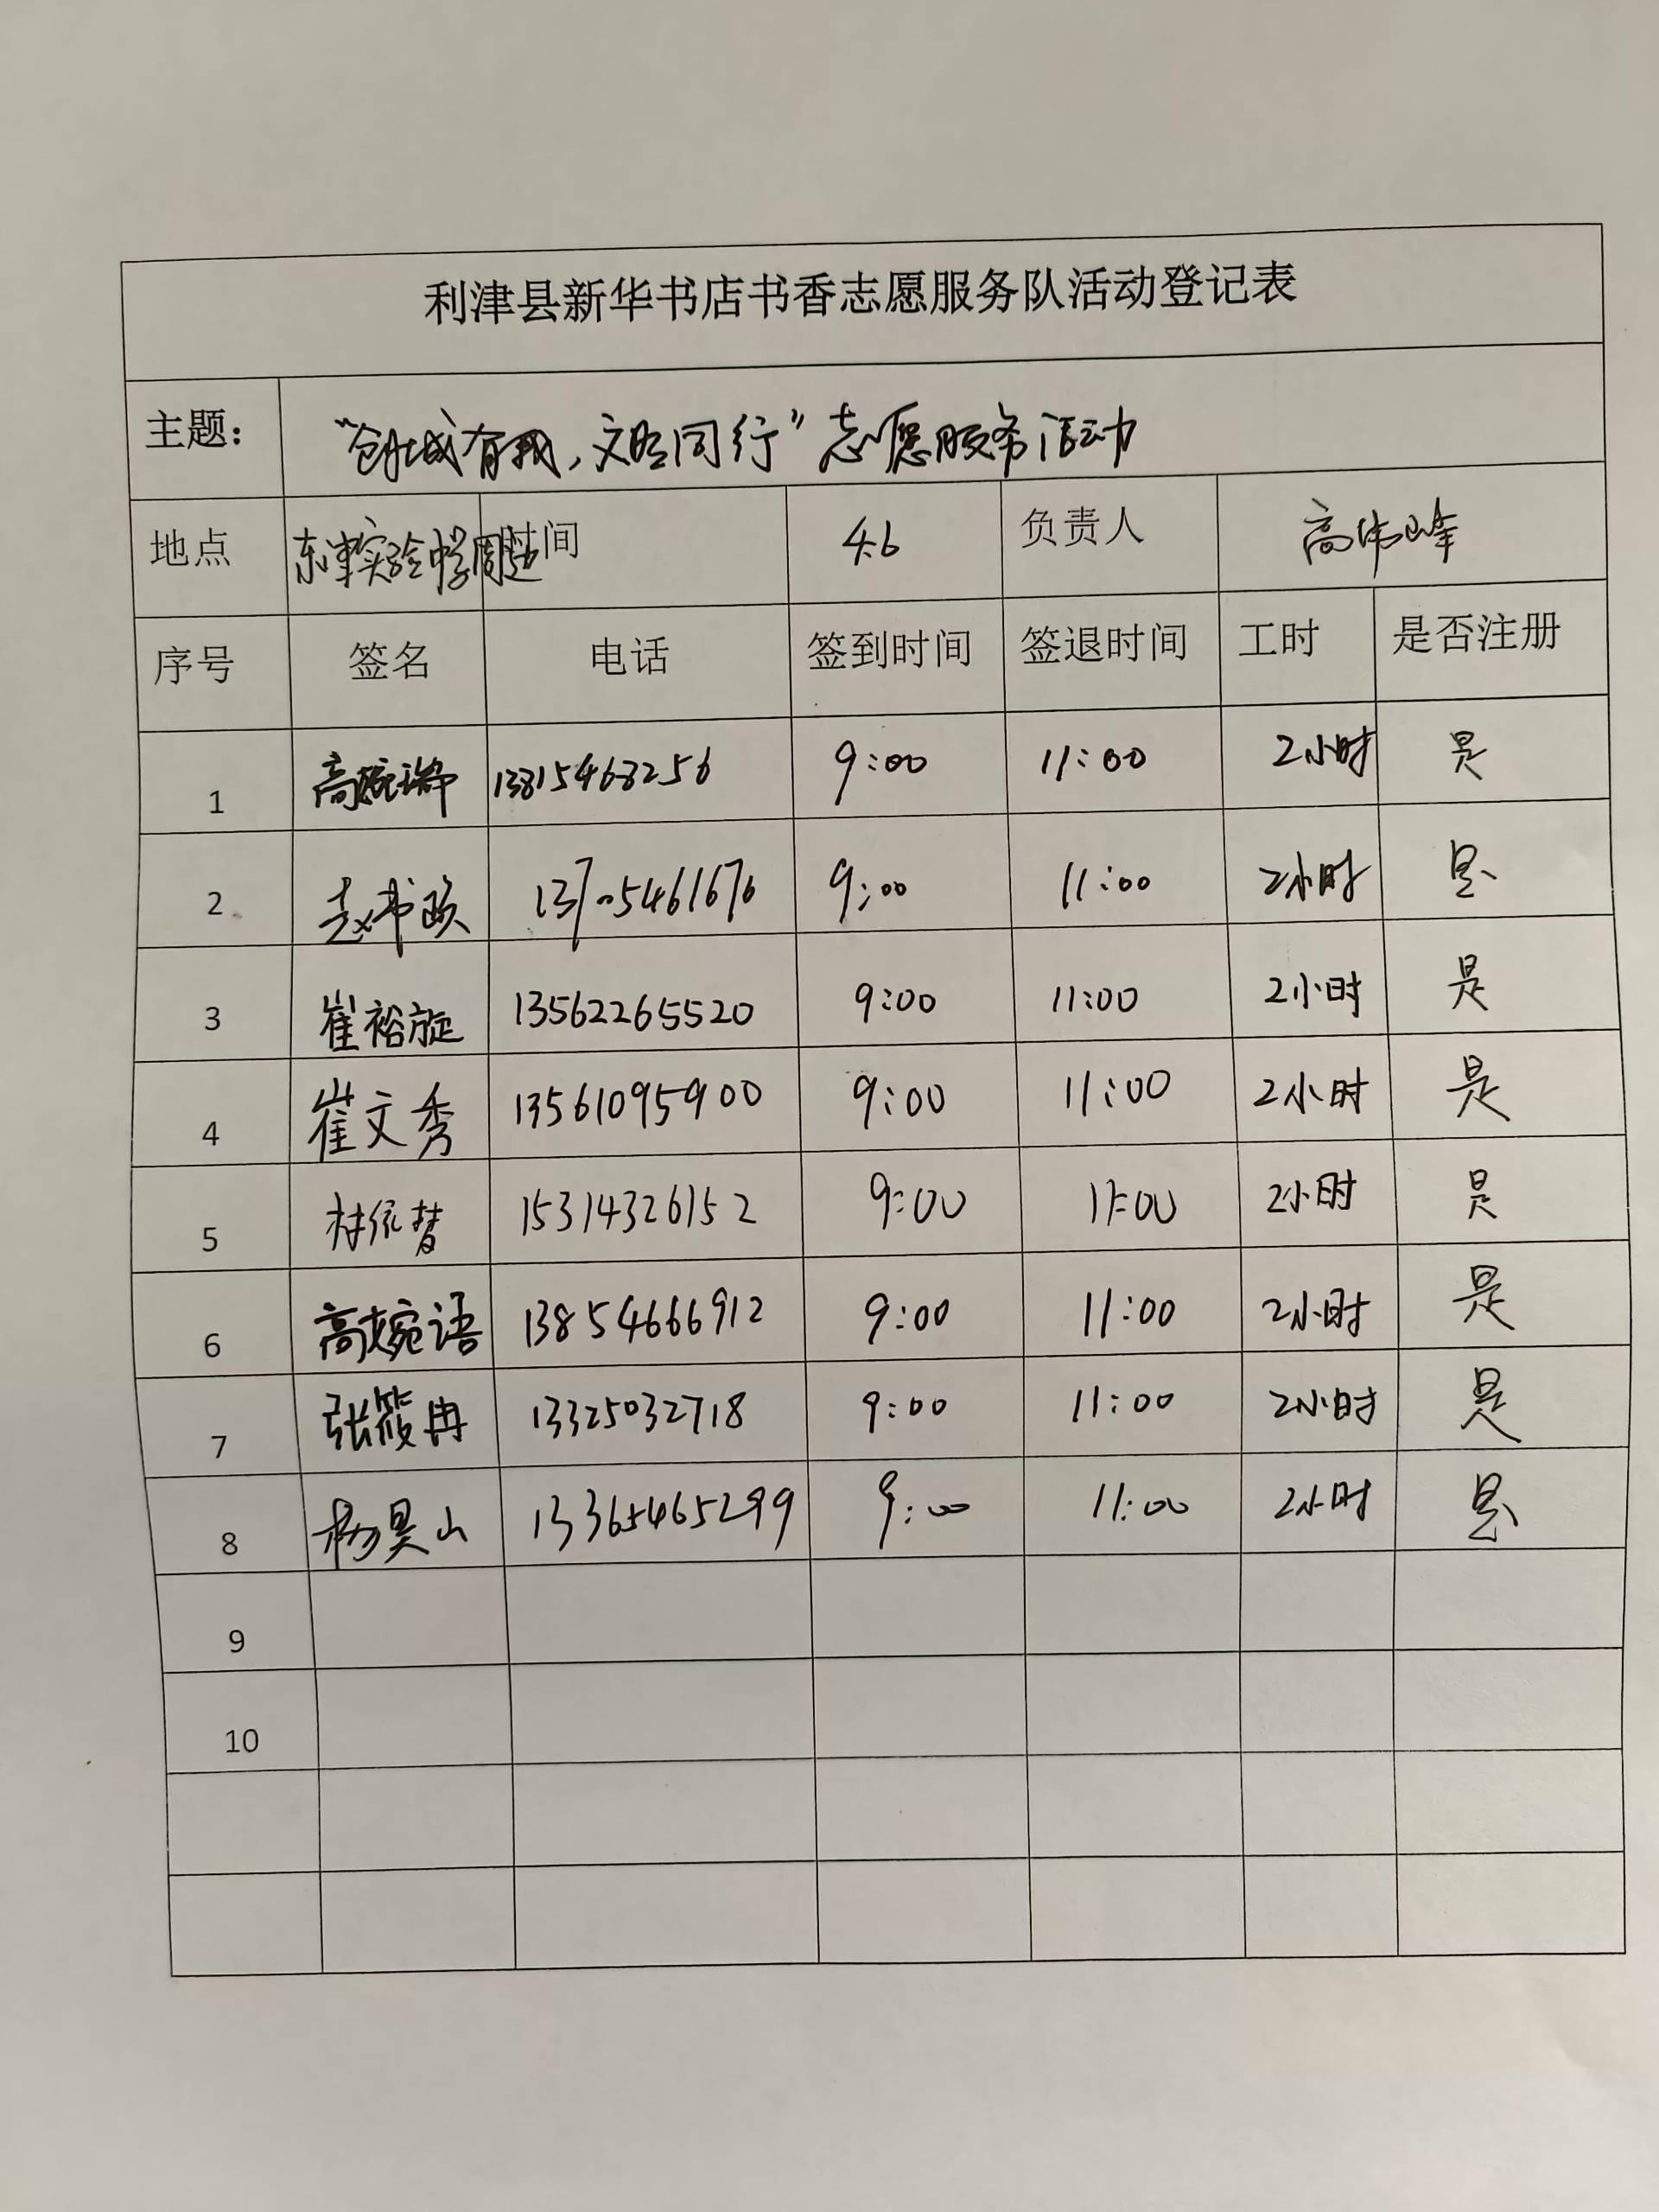 利津县新华书店书香志愿服务队活动登记表
主题： “创城有我，文明同行”志愿服务活动
地点 东津实验中学周边 时间 4.6 负责人 高伟峰
序号 签名 电话 签到时间 签退时间 工时 是否注册
1 高婉瑞 13815468256 9:00 11:00 2小时 是
2 赵书政 13705461676 9:00 11:00 2小时 是
3 崔裕旋 13562265520 9:00 11:00 2小时 是
4 崔文秀 13561095900 9:00 11:00 2小时 是
5 林依 15314326152 9:00 11:00 2小时 是
6 高婉语 13854666912 9:00 11:00 2小时 是
7 张筱冉 13325032718 9:00 11:00 2小时 是
8 杨昊山 13365465299 9:00 11:00 2小时 是
9
10